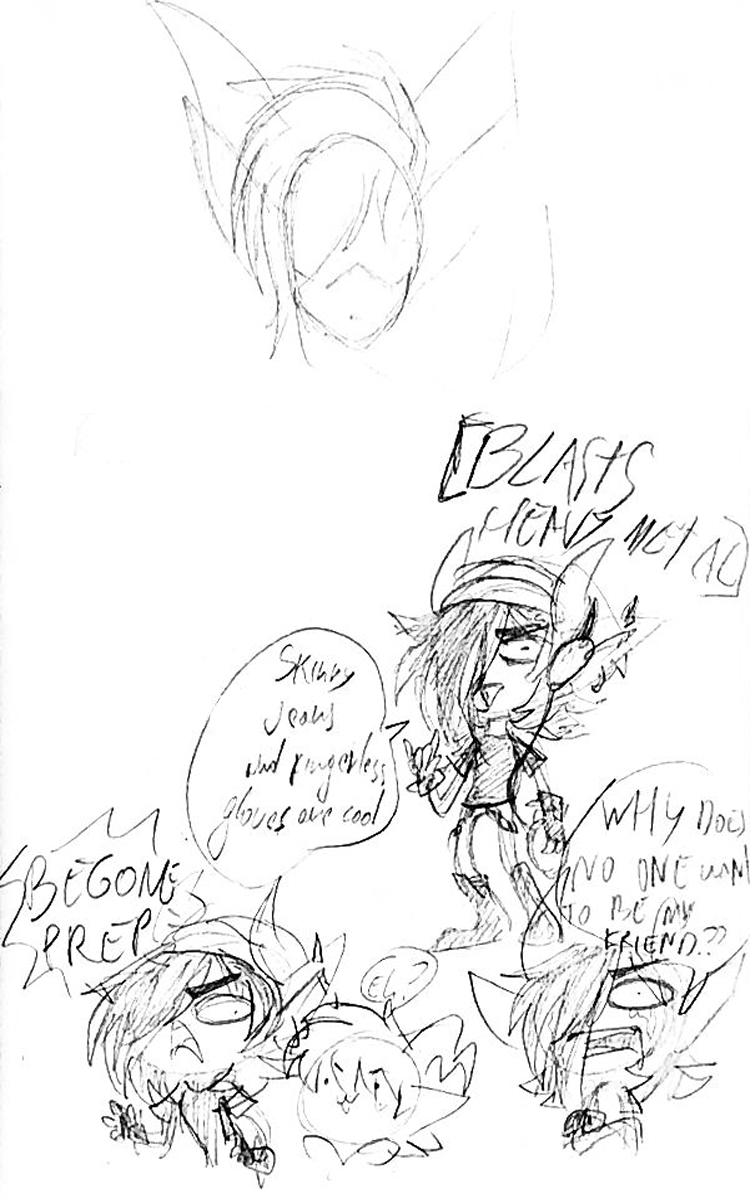 [BLASTS
HEAVY METAL]
Skinny
Jeans
and fingerless
gloves are cool
BEGONE
PREP
WHY DOES
NO ONE WANT
TO BE MY
FRIEND??